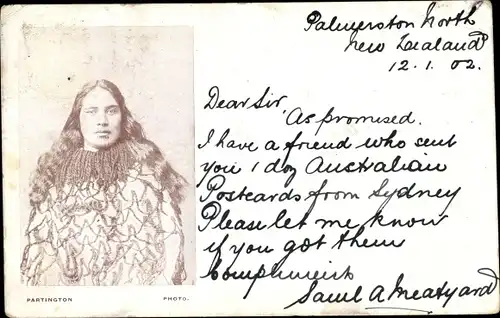 Palmerston North
New Zealand
12.1.02.
Dear Sir,
As promised.
I have a friend who sent
you 1 doz Australian
Postcards from Sydney
Please let me know
if you got them
Compliments
Saml A Meatyard
PARTINGTON PHOTO.